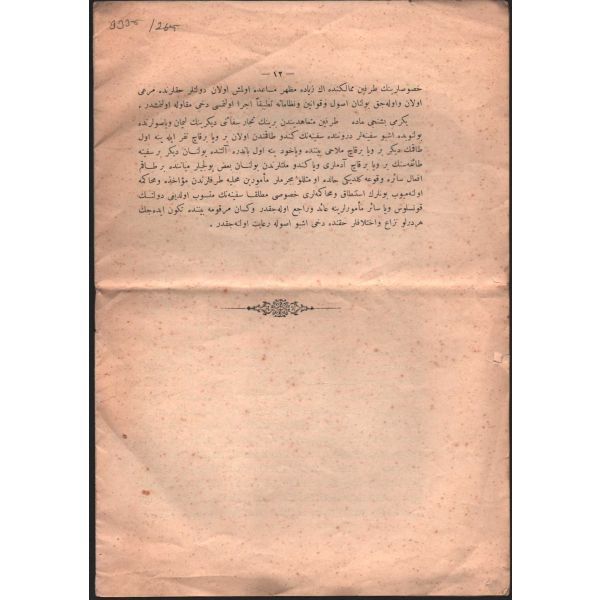 — ١٢ —
خصوصلرينك طرفين ممالكنده اك زياده مظهر مساعده اولمش اولان دولتلر حقلرنده مرعى
اولان واوله‌جق بولنان اصول وقوانين ونظاماته تطبيقاً اجرا اولنمسى دخى مقاوله اولنمشدر .
يكرمى بشنجى ماده طرفين متعاهديندن برينك تجار سفائنى ديكرينك ليمان وياصولرنده
بولنوبده اشبو سفينه‌لر دروننده سفينه‌نك كندو طاقمندن اولان بر ويا برقاچ نفر ايله ينه اول
طاقمك ديكر بر ويا برقاچ ملاحى بيننده وياخود ينه اول باندره آلتنده بولنان ديكر بر سفينه
طائفه‌سنك بر ويا برقاچ آدملرى وياكندو ملتلرندن بولنان بعض يولجيلر مياننده بر طاقم
افعال سائره وقوعه كلديكى حالده او مثللو مجرملر مأمورين محليه طرفلرندن مؤاخذه ومحاكمه
اولنميوب بونلرك استنطاق ومحاكمه‌لرى خصوصى مطلقا سفينه‌نك منسوب اولديغى دولتك
قونسلوس ويا سائر مأمورلرينه عائد وراجع اوله‌جقدر وكسان مرقومه بيننده تكون ايده‌جك
هردرلو نزاع واختلافلر حقنده دخى اشبو اصوله رعايت اولنه‌جقدر .